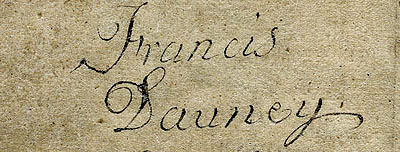 Francis.
Dauney.